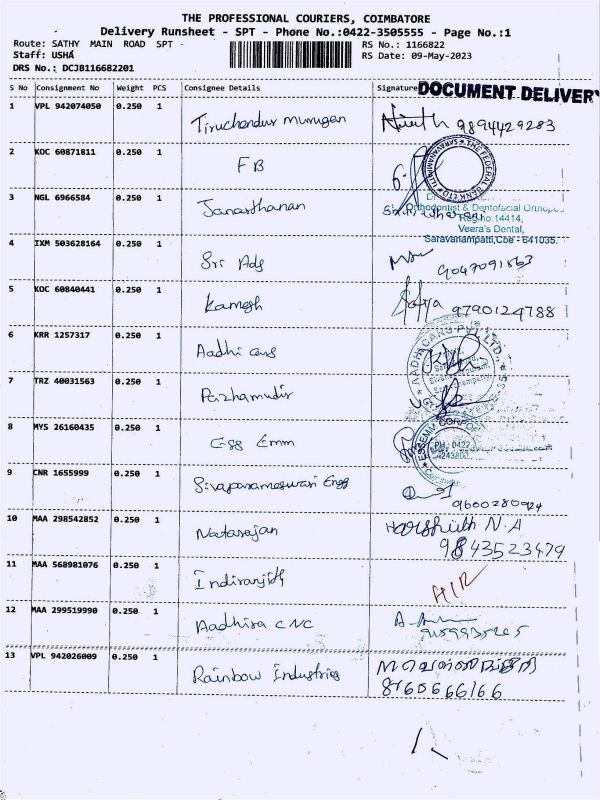 THE PROFESSIONAL COURIERS, COIMBATORE
Delivery Runsheet - SPT - Phone No.:0422-3505555 - Page No.:1
Route: SATHY MAIN ROAD SPT - RS No.: 1166822
Staff: USHA RS Date: 09-May-2023
DRS No.: DCJB116682201
S No Consignment No Weight PCS Consignee Details Signature
DOCUMENT DELIVERY
1 VPL 942074050 0.250 1 Tiruchendur murugan 9894429283
2 KOC 60871811 0.250 1 FB
THE FEDERAL BANK LTD SARAVANAMPATTI
3 NGL 6966584 0.250 1 Janarthanan
Orthodontist & Dentofacial Orthopedi
Reg.no 14414,
Veera's Dental,
Saravanampatti,Cbe - 641035.
4 IXM 503628164 0.250 1 Sri Ads
5 KOC 60840441 0.250 1 Kamesh Sathya 9790124788
6 KRR 1257317 0.250 1 Aadhi cars
AADHI CARS PVT LTD.,
7 TRZ 40031563 0.250 1 Pazhamudir
8 MYS 26160435 0.250 1 Ess Emm
PH : 0422
9 CNR 1655999 0.250 1 Sivaparameswari Engg 9600280924
10 MAA 298542852 0.250 1 Natarajan Harshith N.A
9843523479
11 MAA 568981076 0.250 1 Indiranjith
12 MAA 299519990 0.250 1 Aadhira CNC
13 VPL 942026009 0.250 1 Rainbow Industries
8760666166